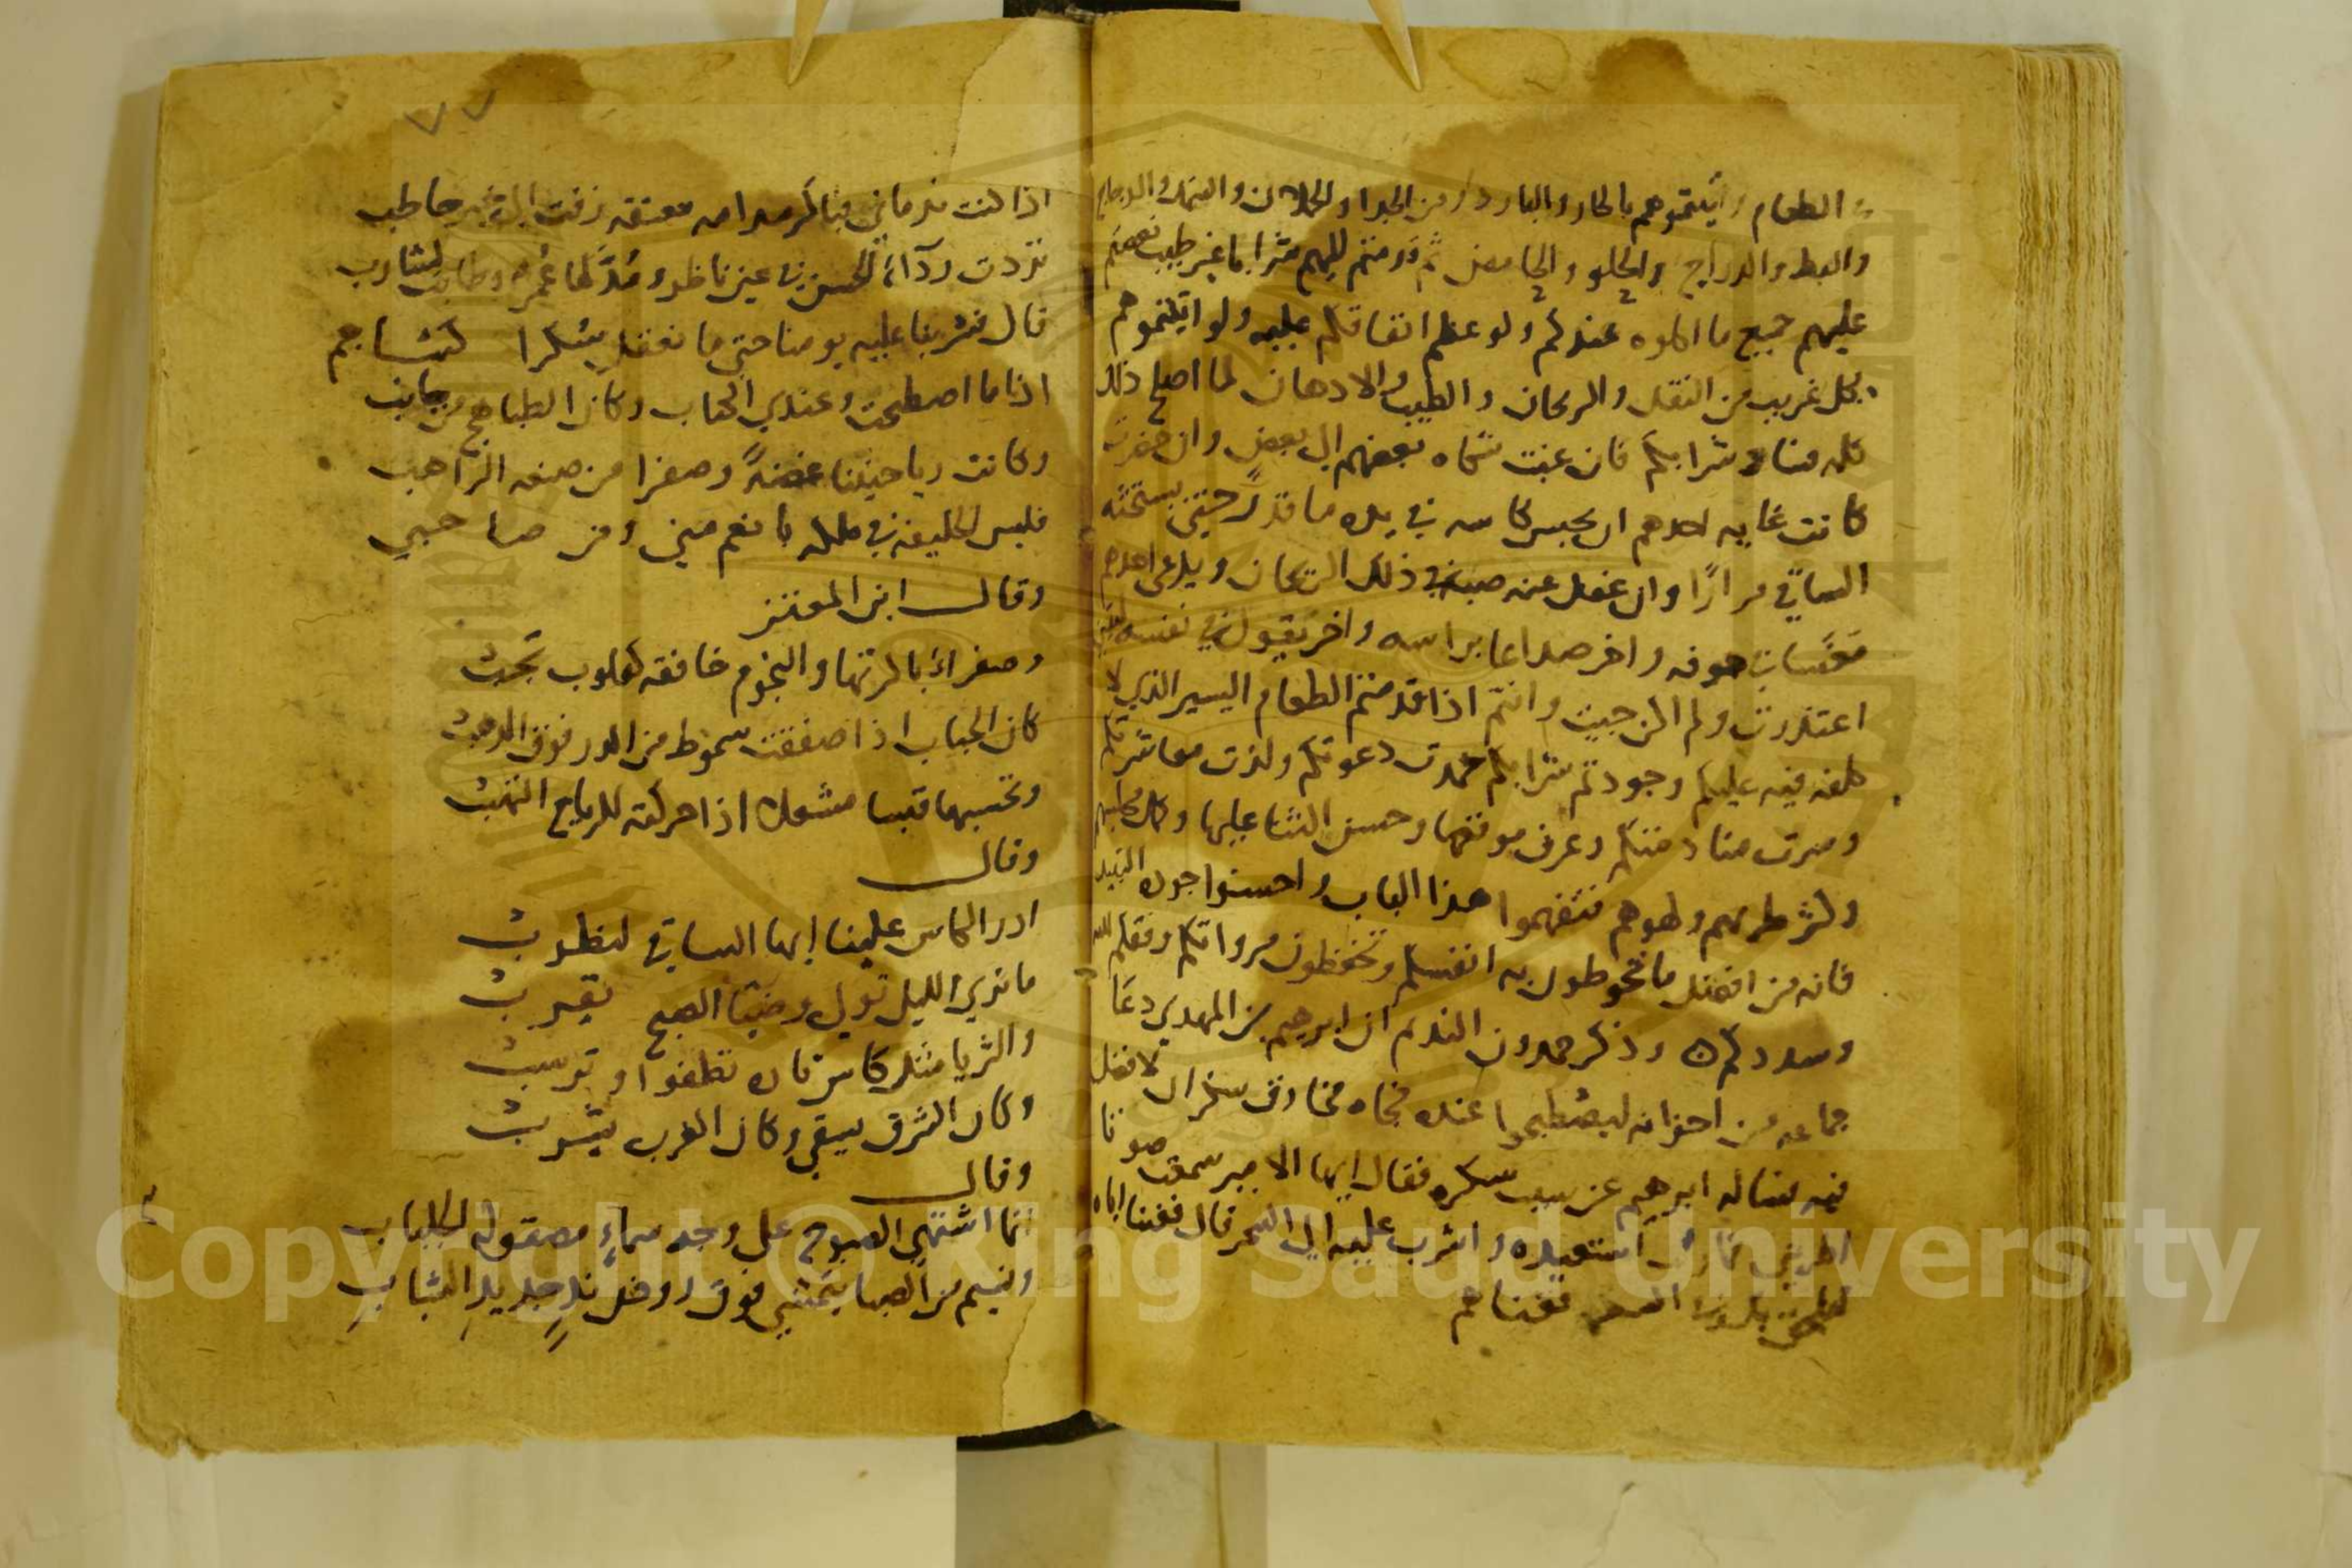 الطعام واتيتموهم بالحار والبارد ومن الجدا والحملان والسمك والدجاج
والبط والدراج والحلو والحامض ثم قدمتم اليهم شرابا غير طيب نغصتم
عليهم جميع ما اكلوه عندكم ولو عظم انفاقكم عليه ولو اتيتموهم
بكل غريب من النقل والريحان والطيب والادهان لما اصلح ذلك
كله فساد شرابكم فان غبت شكاه بعضهم الى بعض وان حضرت
كانت غايه احدهم ان يحبس كاسه في يده ما قدر حتى يستحثه
الساقي مرارا وان غفل عنه صبه في ذلك الريحان ويدعي احدهم
جوفه واخر صداعا براسه واخر يقول في نفسه ليتني
اعتذرت ولم اكن جيت وانتم اذا قدمتم الطعام اليسير الذي لا
كلفه فيه عليكم وجودتم شرابكم حمدت دعوتكم ولذت معاشرتكم
وسرت منادمتكم وعرف موقعها وحسن الثنا عليها
وكثر طربهم ولهوهم فتفهموا هذا الباب واحسنوا جوده النبيذ
فانه من افضل ما تحوطون به انفسكم وتحفظون مرواتكم وفقكم الله
وسددكم ه وذكر حمدون النديم ان ابرهيم بن المهدي دعا
جماعه من اخوانه ليصطبحوا عنده فجاه مخارق سكران لا فضل
فيه فساله ابرهيم عن سبب سكره فقال ايها الامير سمعت صوتا
اطربني فما زلت استعيده واشرب عليه الى السحر قال فغننا اياه
فغناهم
٧٧
اذا كنت ندماني فباكر مدامه معتقه زفت الى غير خاطب
تردت ردآء الحسن في عين ناظر ومد لها عمر وطابت لشارب
قال فشربنا عليه يومنا حتى ما نعقل سكرا كشاجم
اذا ما اصطبحت وعندي الكتاب وكان الطباهج من جانب
وكانت رياحيننا غضة وصفرا من صنعه الراهب
فليس الخليفه في ملكه بانعم مني ومن صاحبي
وقال ابن المعتز
وصفراء باكرتها والنجوم خافقه كقلوب تجب
كان الحباب اذا صفقت سموط من الدر فوق الذهب
وتحسبها قبسا مشعلا اذا حركته للرياح التهب
وقال
ادر الكاس علينا ايها الساقي لنطرب
ما ترى الليل تولى وضيا الصبح يقرب
والثريا مثل كاس تطفوا وترسب
وكان الشرق يسقي وكان الغرب يشرب
وقال
انما اشتهي الصبوح على وجه سماء مصقوله الجلباب
ونسيم من الصبا يتمشي فوق روض ند جديد الشباب
Copyright © King Saud University